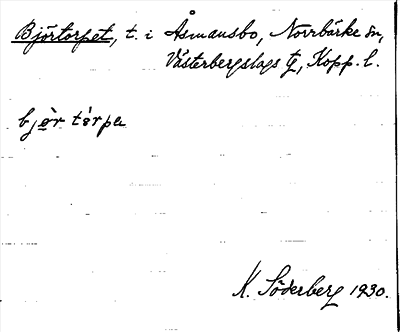 Björtorpet, t. i Åsmansbo, Norrbärke sn,
Västerbergslags tg, Kopp. l.
bjọ̈r törpa
K. Söderberg 1930.